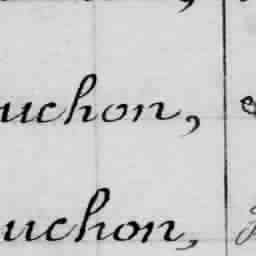 uchon,
uchon,